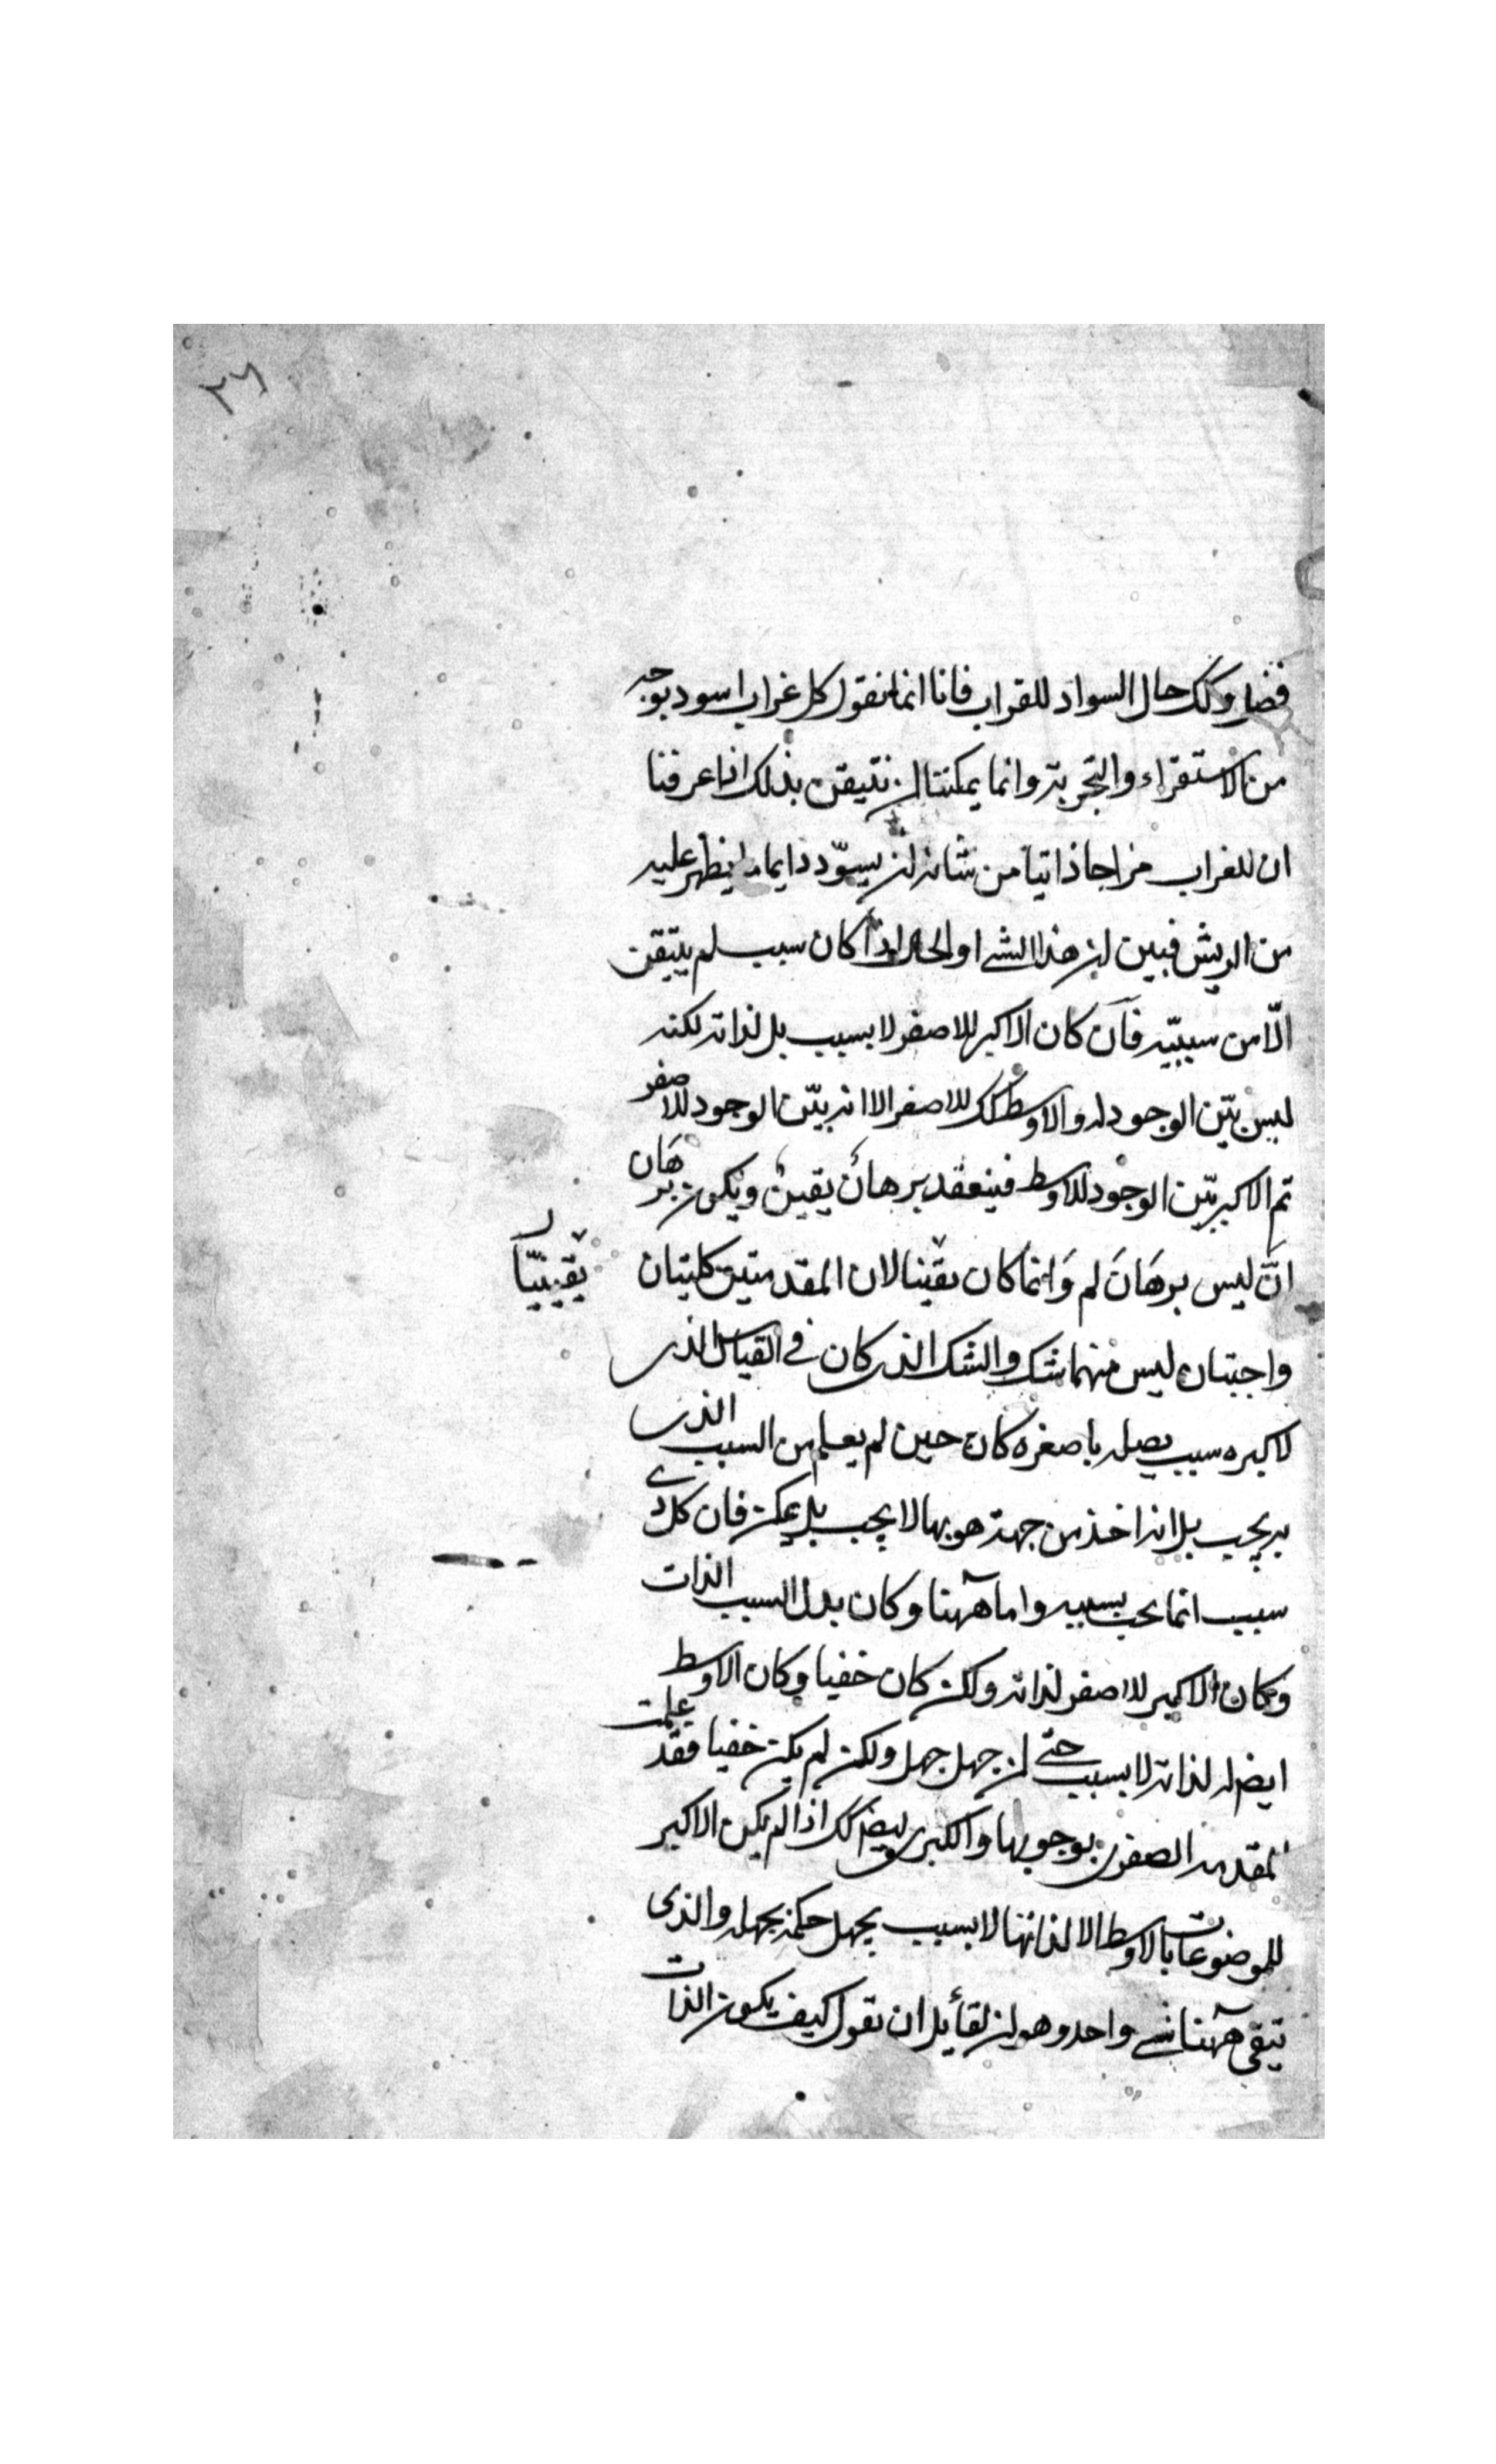 ٢٦
فضل وكك حال السواد للقراب فانا انما نقول كل غراب اسود بوجه
من الاستقراء والتجربة وانما يمكننا ان نتيقن بذلك اذا عرفنا
ان للغراب مزاجا ذاتيا من شانه ان يسوّد دايما ما يظهر عليه
من الريش فبين ان هذا الشے او الحال اذا كان سبب لم يتيقن
الّا من سببيّه فآن كان الاكبر للاصغر لا بسبب بل لذاته لكنه
ليس بيّن الوجود له والاوسط كك للاصغر الا انه بيّن الوجود للاصغر
ثم الاكبر بيّن الوجود للاوسط فينعقد برهان يقين ويكون برهان
انّ ليس برهان لم وانما كان يقينا لان المقدمتين كليتان
يقينيّا ل
واجبتان ليس منهما شك والشك الذى كان في القياس الذى
لاكبره سبب يصله باصغره كان حين لم يعلم من السبب الذى
به يجب بل انه اخذ من جهة هو بها لا يجب بل يمكن فان كل ذى
سبب انما يجب بسببه واما ههنا وكان بدل السبب الذات
وكان الاكبر للاصغر لذاته ولكن كان خفيا وكان الاوسط
ايضا له لذاته لا بسبب حتے ان جهل جهل ولكن لم يكن خفيا فقد علمت
المقدمه الصغرى بوجوبها والكبرى ايضا كك اذا لم يكن الاكبر
للموضوعات بالاوسط الا لذاتها لا بسبب يجهل حكمه بجهله والذى
تبقى ههنا شے واحد وهو ان لقائل ان يقول كيف يكون الذات